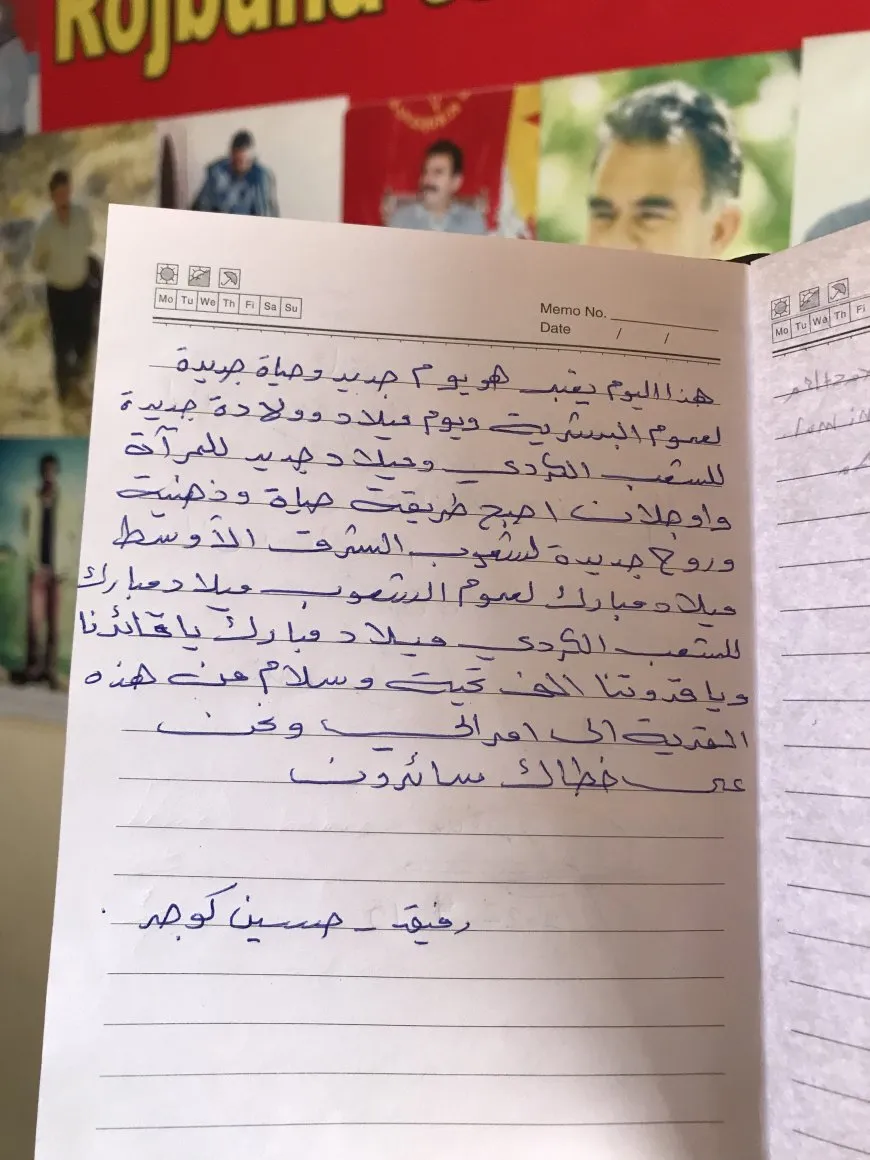 Rojbûna
Mo Tu We Th Fi Sa Su
Memo No.
Date / /
هذا اليوم يعتبر هو يوم جديد وحياة جديدة
لعموم البشرية ويوم ميلاد وولادة جديدة
للشعب الكردي وميلاد جديد للمرآة
واوجلان اصبح طريقة حياة وذهنية
وروح جديدة لشعوب الشرق الأوسط
ميلاد مبارك لعموم الشعوب ميلاد مبارك
للشعب الكردي ميلاد مبارك يا قائدنا
ويا قدوتنا الف تحية وسلام من هذه
القرية الى امرالي ونحن
على خطاك سائرون
رفيق - حسين كوجر
Mo Tu We Th Fi